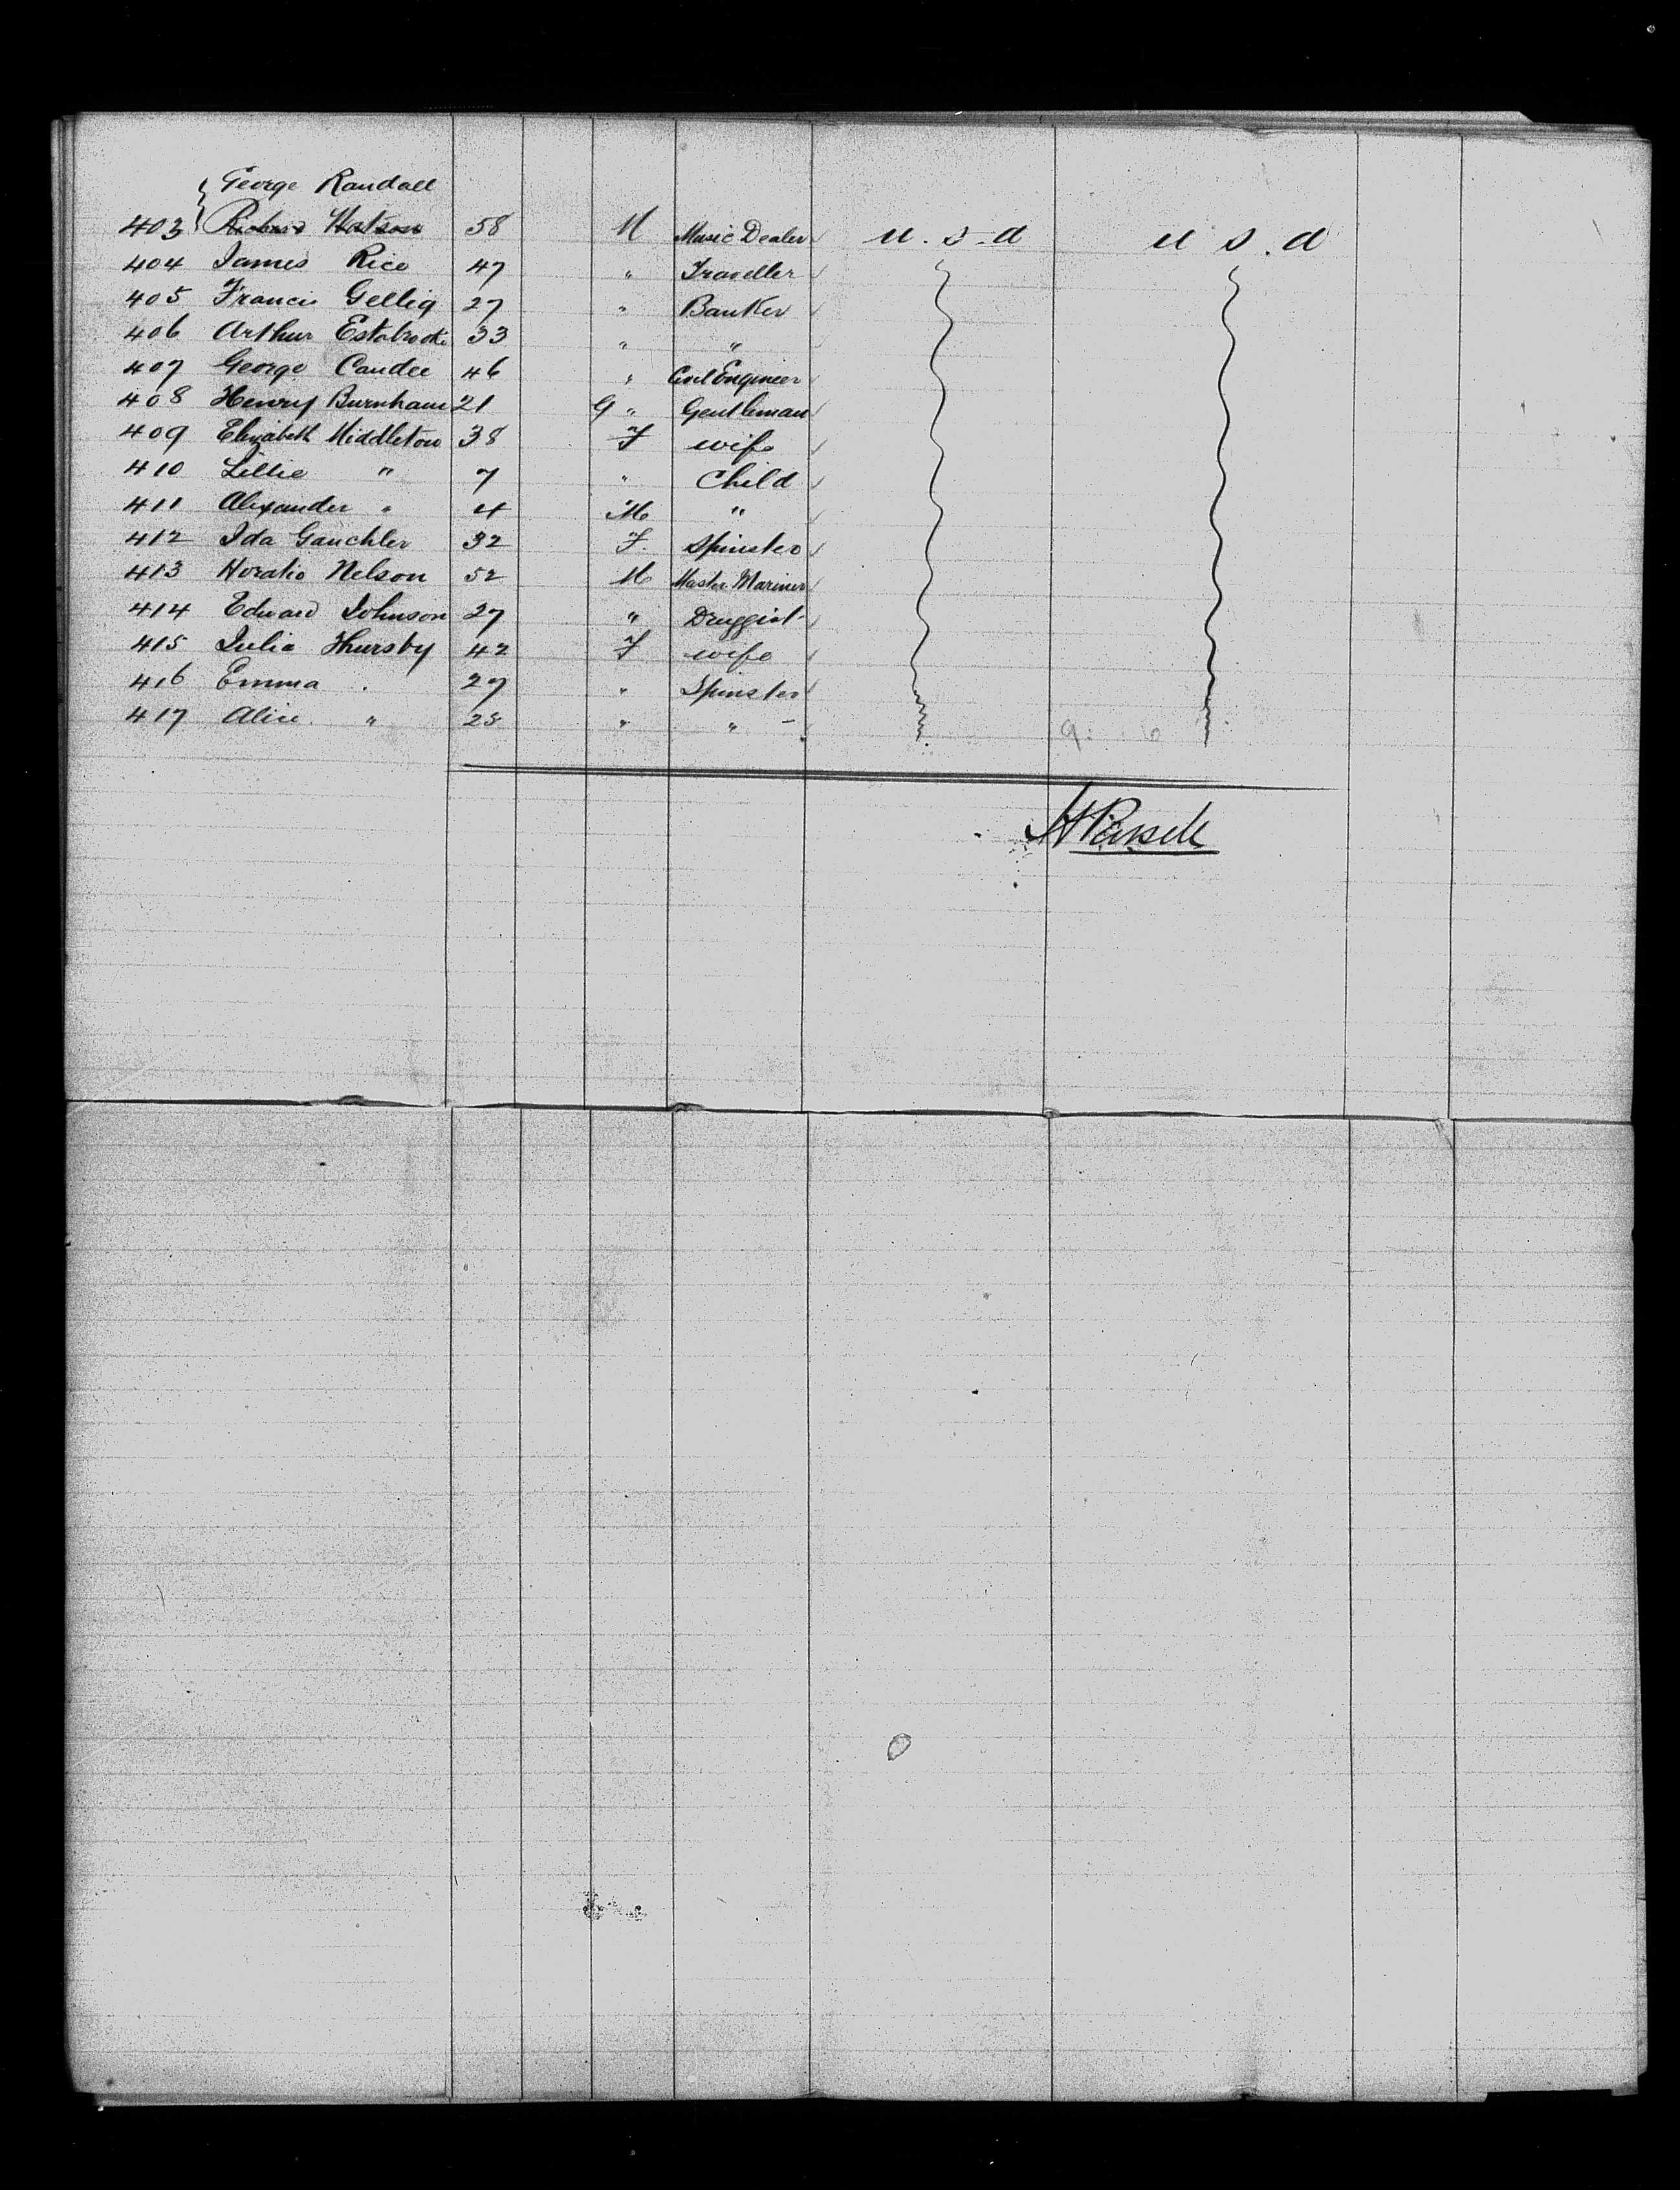 George Randall
403 Richard Watson 58 M Music Dealer u. s. a u s. a
404 James Rice 47 " Traveller
405 Francis Gellig 27 " Banker
406 Arthur Estabrook 33 " "
407 George Candee 46 " Civil Engineer
408 Henry Burnham 21 G " Gentleman
409 Elizabeth Middleton 38 F wife
410 Lillie " 7 " Child
411 Alexander " 4 M "
412 Ida Gauchler 32 F. Spinster
413 Horatio Nelson 52 M Master Mariner
414 Edward Johnson 27 " Druggist
415 Julia Thursby 42 F wife
416 Emma . 27 " Spinster
417 Alice " 25 " " -